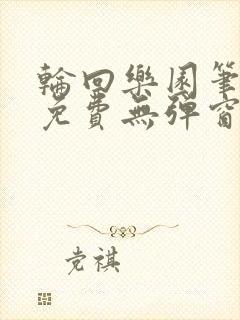 輪回樂園筆
免費無彈窗
党祺